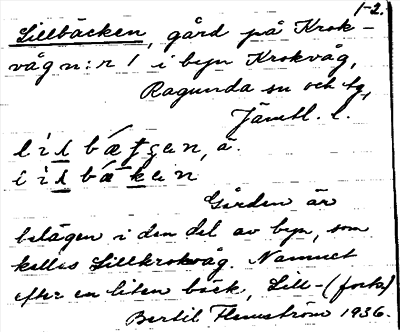 1-2.
Lillbäcken, gård på Krok-
våg n:r 1 i byn Krokvåg,
Ragunda sn och tg,
Jämtl. l.
Gården är
belägen i den del av byn, som
kallas Lillkrokvåg. Namnet
efter en liten bäck, Lill-(forts)
Bertil Flemström 1936.